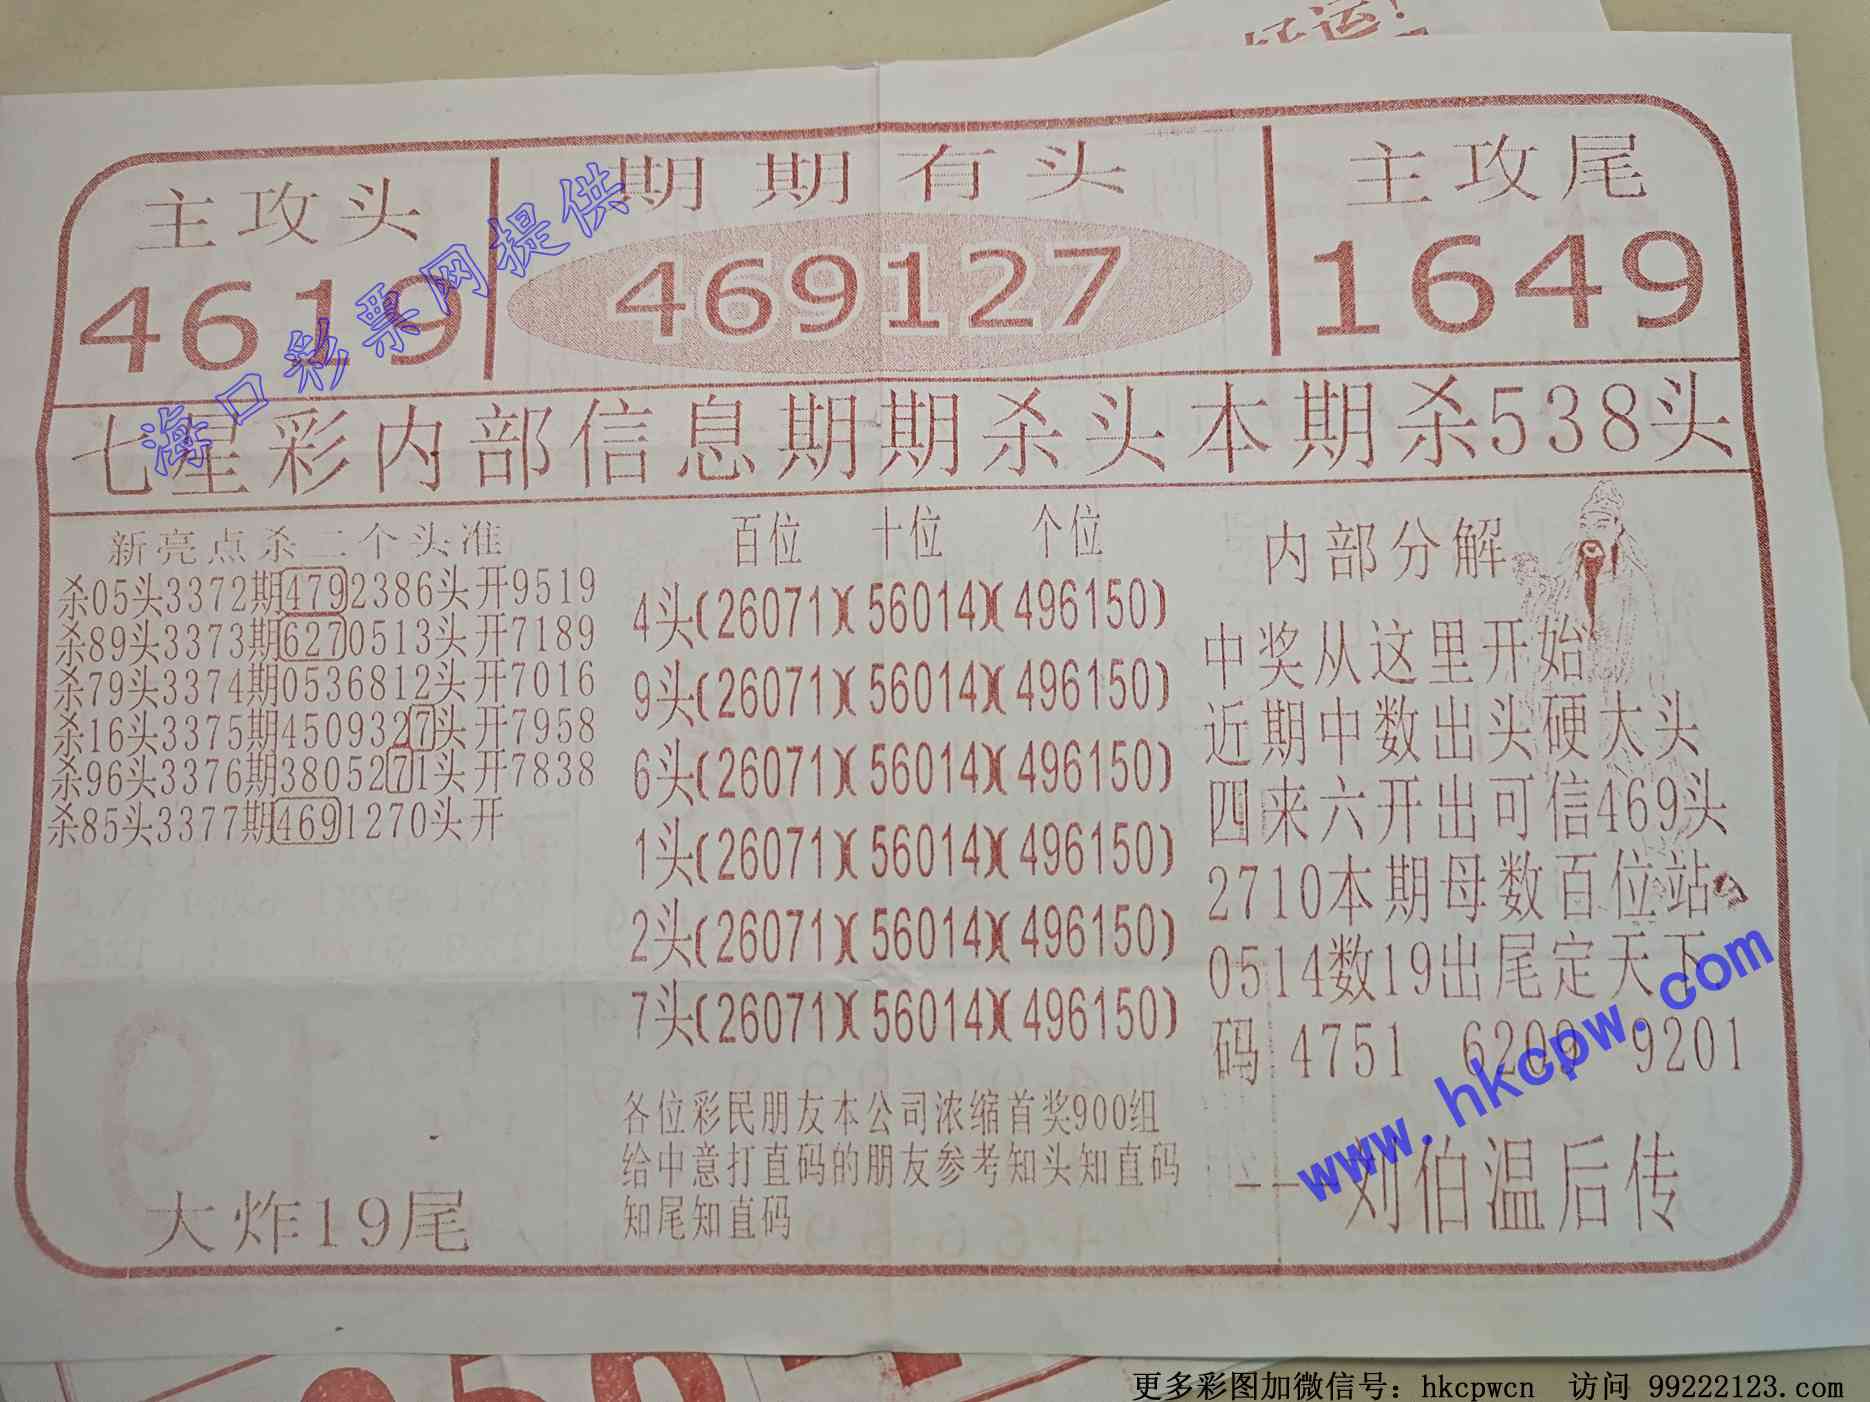 好运!
主攻头
4619
期期有头
469127
主攻尾
1649
七星彩内部信息期期杀头本期杀538头
新亮点杀二个头准
杀05头3372期4792386头开9519
杀89头3373期6270513头开7189
杀79头3374期0536812头开7016
杀16头3375期4509327头开7958
杀96头3376期3805271头开7838
杀85头3377期4691270头开
大炸19尾
百位 十位 个位
4头(26071)(56014)(496150)
9头(26071)(56014)(496150)
6头(26071)(56014)(496150)
1头(26071)(56014)(496150)
2头(26071)(56014)(496150)
7头(26071)(56014)(496150)
各位彩民朋友本公司浓缩首奖900组
给中意打直码的朋友参考知头知直码
知尾知直码
内部分解
中奖从这里开始
近期中数出头硬太头
四来六开出可信469头
2710本期母数百位站
0514数19出尾定天下
码:4751 6209 9201
---刘伯温后传
海口彩票网提供
www.hkcpw.com
更多彩图加微信号: hkcpwcn 访问 99222123.com